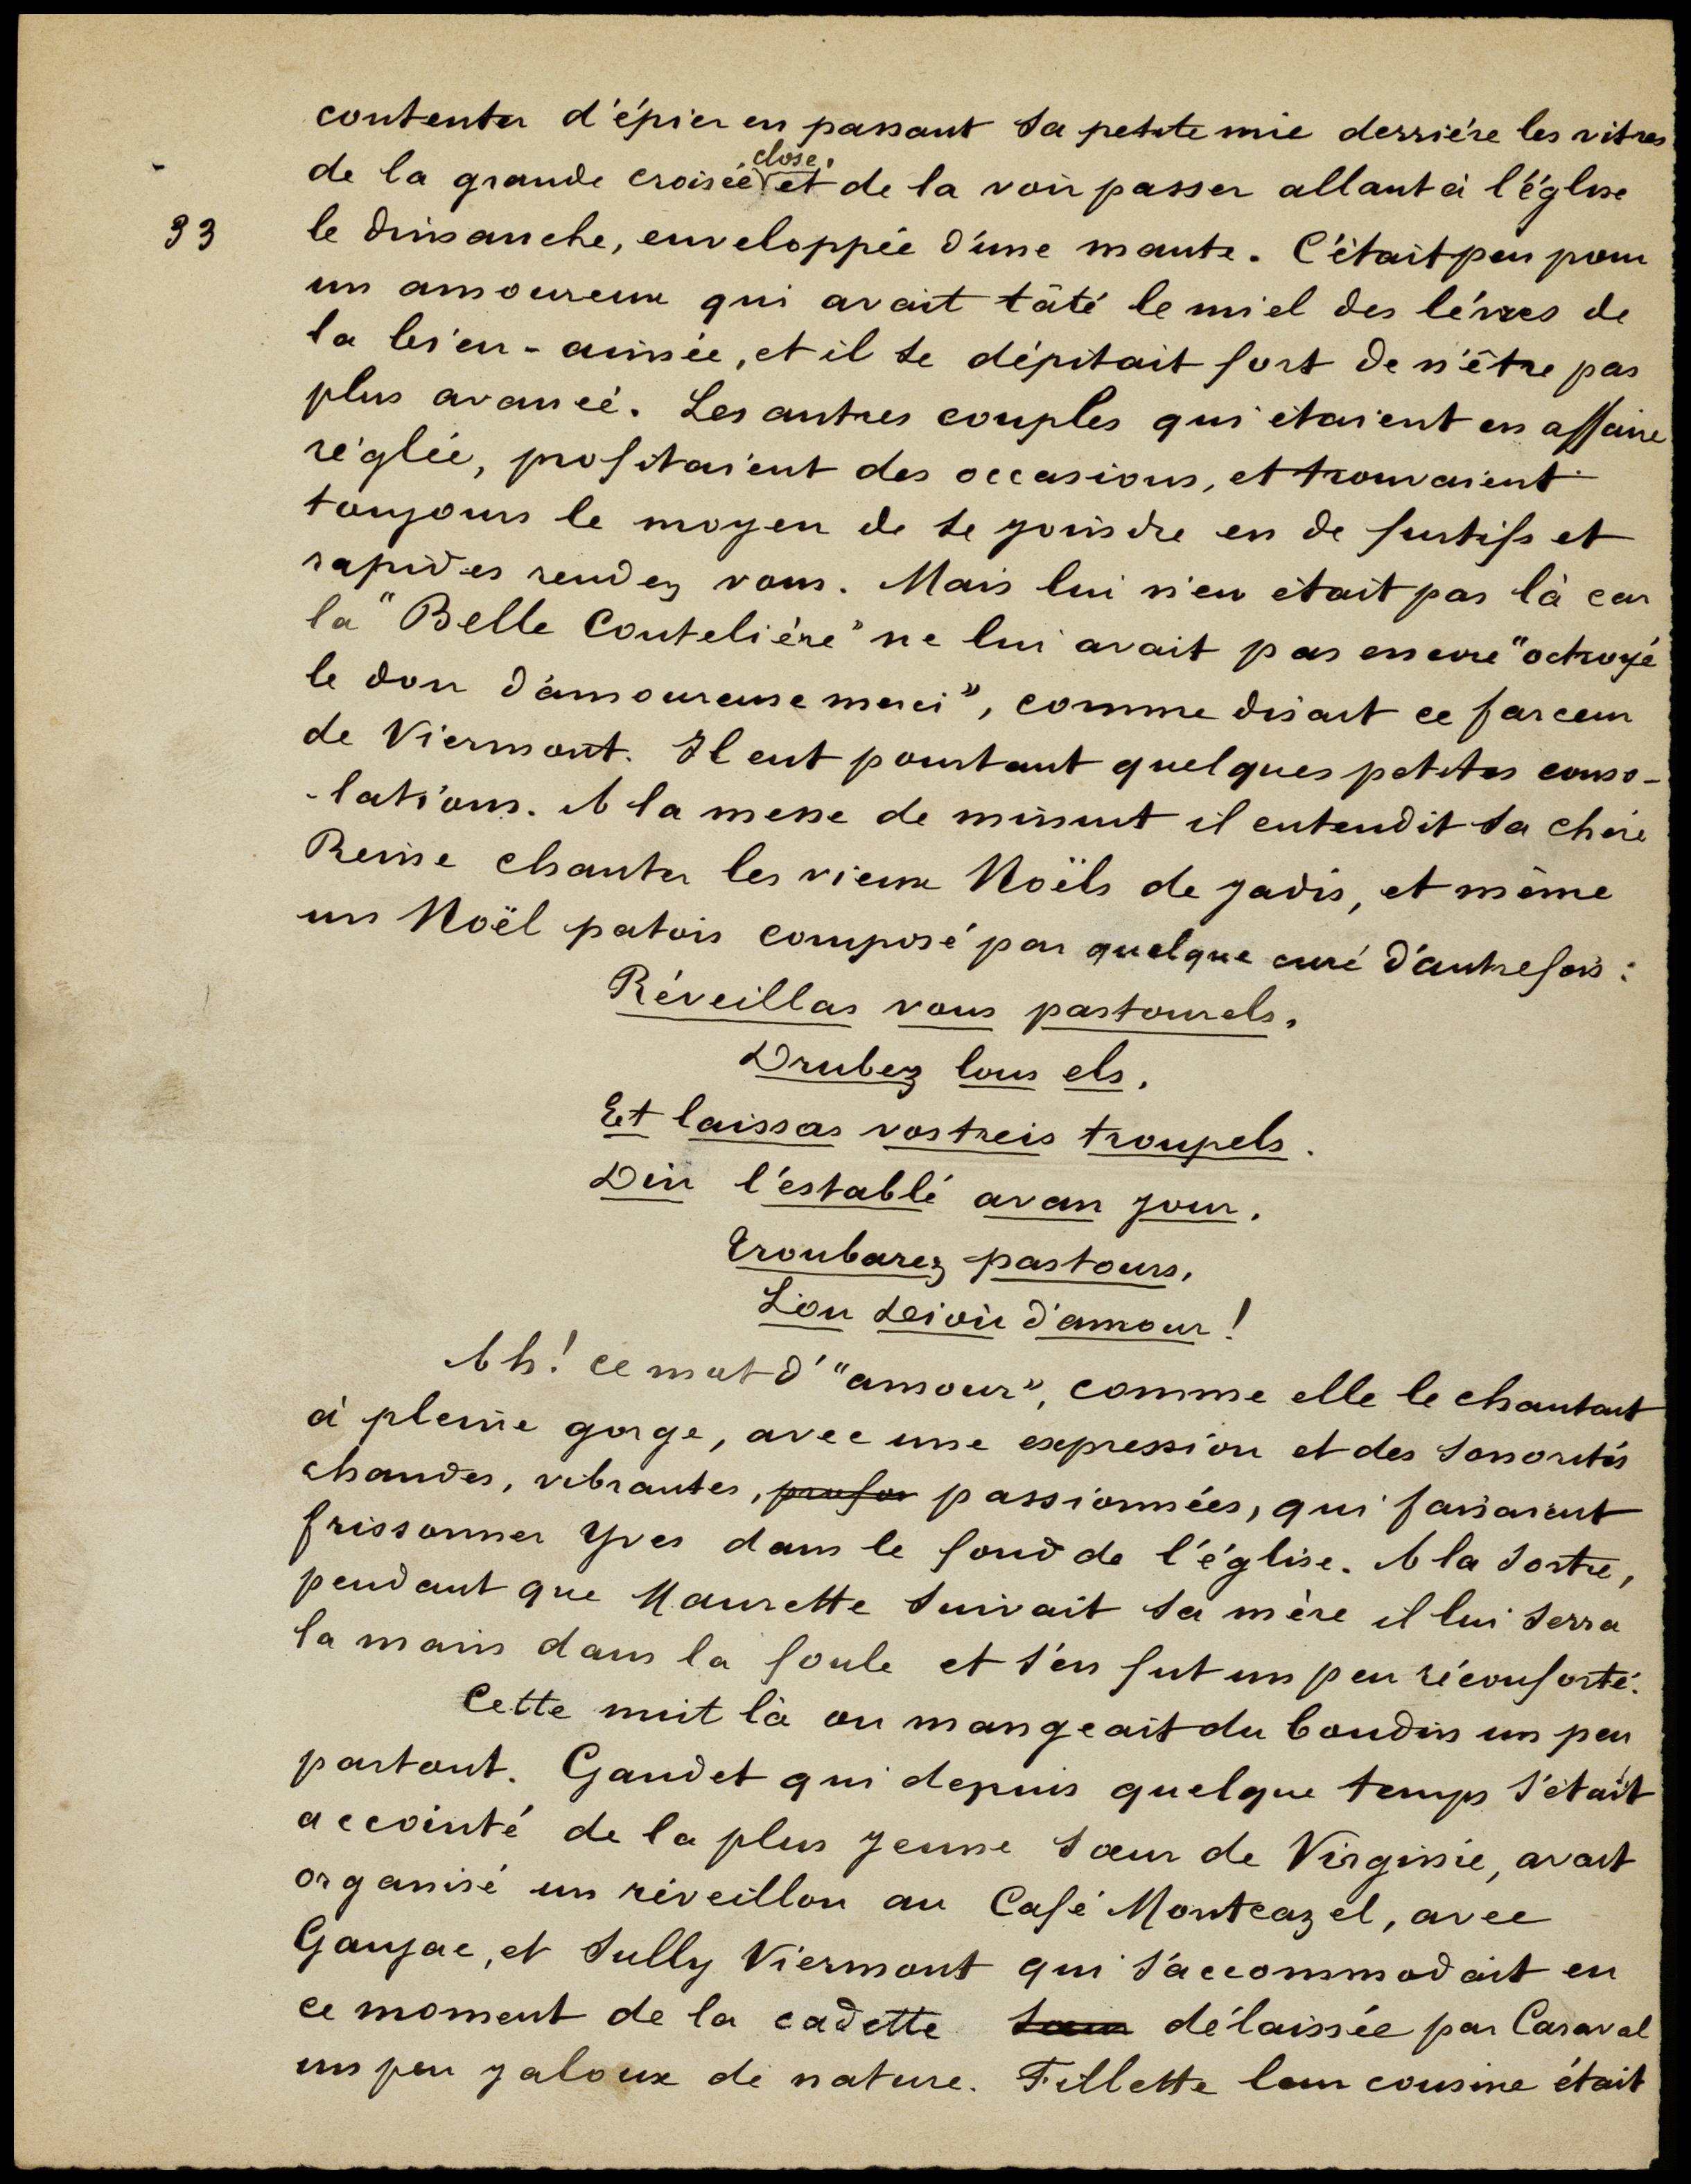 contenter d'épier en passant sa petite mie derrière les vitres
de la grande croisée close, et de la voir passer allant à l'église
33
le dimanche, enveloppée d'une mante. C'était peu pour
un amoureux qui avait tâté le miel des lèvres de
la bien-aimée, et il se dépitait fort de n'être pas
plus avancé. Les autres couples qui étaient en affaire
réglée, profitaient des occasions, et trouvaient
toujours le moyen de se joindre en de furtifs et
rapides rendez vous. Mais lui n'en était pas là car
la "Belle Coutelière" ne lui avait pas encore "octroyé
le don d'amoureuse merci", comme disait ce farceur
de Viermont. Il eut pourtant quelques petites conso-
-lations. A la messe de minuit il entendit sa chère
Reine chanter les vieux Noëls de jadis, et même
un Noël patois composé par quelque curé d'autrefois :
Réveillas vous pastourels,
Drubez lous els,
Et laissas vostreis troupels.
Din l'establé avan jour,
Troubarez pastours,
Lou Deivir d'amour !
Ah ! ce mot d' "amour", comme elle le chantait
à pleine gorge, avec une expression et des sonorités
chaudes, vibrantes, profon passionnées, qui faisaient
frissonner Yves dans le fond de l'église. A la sortie,
pendant que Maurette suivait sa mère il lui serra
la main dans la foule et s'en fut un peu réconforté.
Cette nuit là on mangeait du boudin un peu
partout. Gaudet qui depuis quelque temps s'était
accointé de la plus jeune sœur de Virginie, avait
organisé un réveillon au Café Montcazel, avec
Gaujac, et Sully Viermont qui s'accommodait en
ce moment de la cadette sœur délaissée par Caraval
un peu jaloux de nature. Fillette leur cousine était